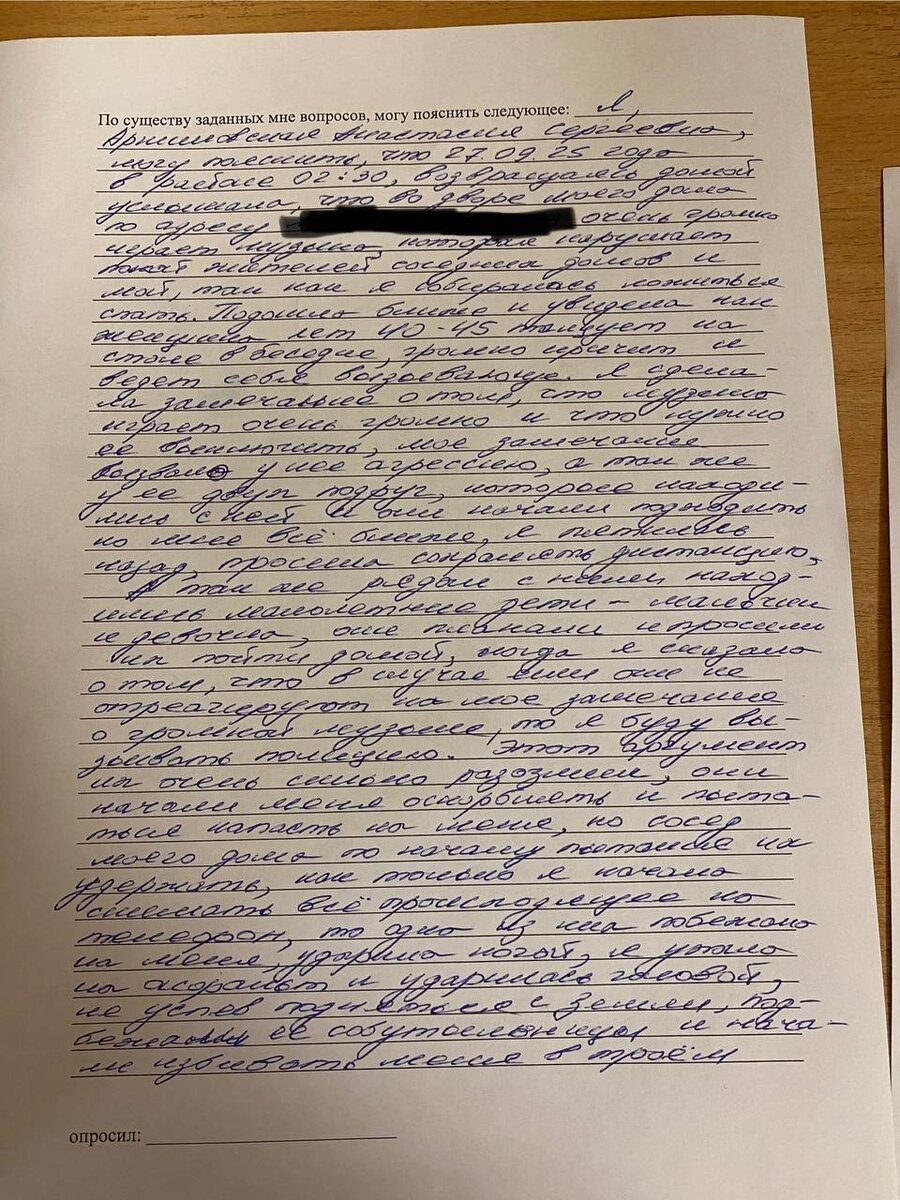 По существу заданных мне вопросов, могу пояснить следующее: Я,
Анастасия Сергеевна,
могу пояснить, что 27.09.25 года
в 02:30, возвращаясь домой
услышала, что во дворе моего дома
по адресу очень громко
играет музыка, которая нарушает
покой жителей соседних домов и
мой, так как я собиралась ложиться
спать. Подошла ближе и увидела как
женщина лет 40-45 танцует на
столе в беседке, громко кричит и
ведет себя вызывающе. Я сдела-
ла замечание о том, что музыка
играет очень громко и что нужно
ее выключить, мое замечание
вызвало у нее агрессию, а так же
у ее двух подруг, которые находи-
лись с ней и они начали подходить
ко мне всё ближе, я пятилась
назад, просила сохранять дистанцию,
так же рядом с ними наход-
ились малолетние дети - мальчик
и девочка, они плакали и просили
их пойти домой, когда я сказала
о том, что в случае если они не
отреагируют на мое замечание
о громкой музыке, то я буду вы-
зывать полицию. Этот аргумент
их очень сильно разозлил, они
начали меня оскорблять и пыта-
ться напасть на меня, но сосед
моего дома по началу пытался их
удержать, как только я начала
снимать всё происходящее на
телефон, то одна из них побежала
на меня, ударила ногой, я упала
на асфальт и ударилась головой,
не успев подняться с земли, под-
бежали ее собутыльницы и нача-
ли избивать меня в троём
опросил: